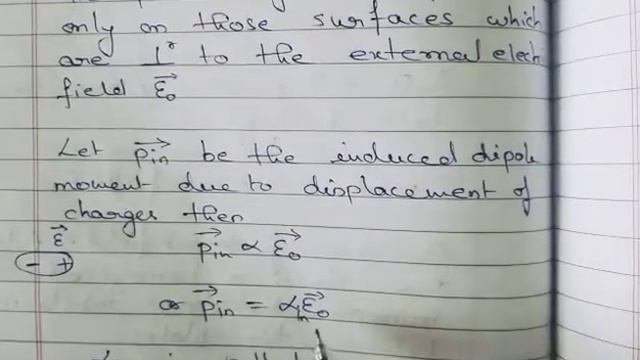 only on those surfaces which
are ⊥r to the external elect
field ε⃗₀
Let p⃗in be the induced dipole
moment due to displacement of
charges then
ε⃗
p⃗in ∝ ε⃗₀
- +
or p⃗in = αₙε⃗₀